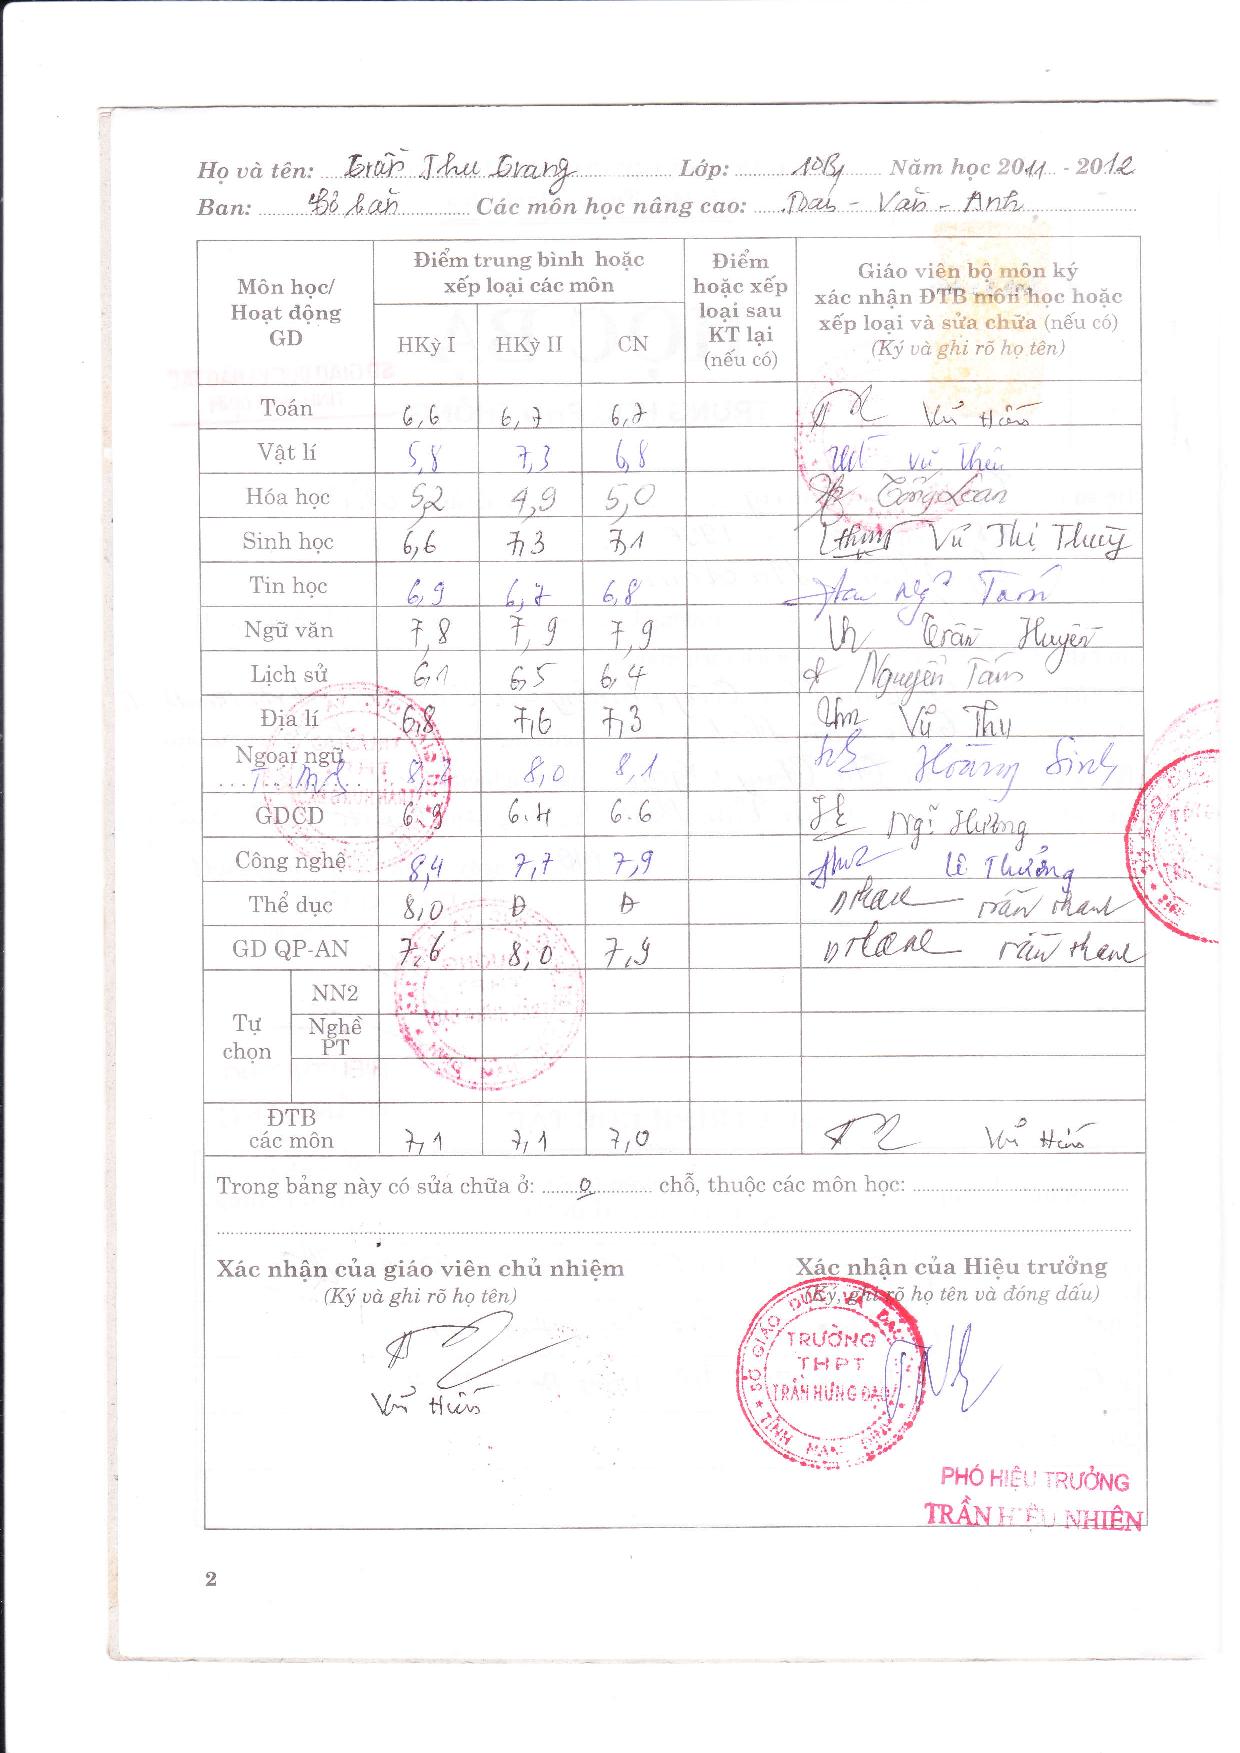 Họ và tên: Trần Thu Trang Lớp: 10B1 Năm học 2011 - 2012
Ban: Cơ bản Các môn học nâng cao: Toán - Văn - Anh
Môn học/ Hoạt động GD
Điểm trung bình hoặc xếp loại các môn
HKỳ I HKỳ II CN
Điểm hoặc xếp loại sau KT lại (nếu có)
Giáo viên bộ môn ký xác nhận ĐTB môn học hoặc xếp loại và sửa chữa (nếu có)
(Ký và ghi rõ họ tên)
Toán 6,6 6,7 6,7 Vũ Hiến
Vật lí 5,8 7,3 6,8 Vũ Thêu
Hóa học 5,2 4,9 5,0 Tống Loan
Sinh học 6,6 7,3 7,1 Vũ Thị Thuỳ
Tin học 6,9 6,7 6,8 Tấm
Ngữ văn 7,8 7,9 7,9 Trần Huyền
Lịch sử 6,1 6,5 6,4 Nguyễn Tấm
Địa lí 6,8 7,6 7,3 Vũ Thu
Ngoại ngữ 8,0 8,1 Hoàng Sinh
T. Anh
GDCD 6.9 6.4 6.6 Hường
Công nghệ 8,4 7,7 7,9 Lê Thưởng
Thể dục 8,0 Đ Đ Trần Thanh
GD QP-AN 7,6 8,0 7,9 Trần Thanh
Tự chọn
NN2
Nghề PT
ĐTB các môn 7,1 7,1 7,0 Vũ Hiến
Trong bảng này có sửa chữa ở: 0 chỗ, thuộc các môn học:
Xác nhận của giáo viên chủ nhiệm Xác nhận của Hiệu trưởng
(Ký và ghi rõ họ tên) (Ký, ghi rõ họ tên và đóng dấu)
SỞ GIÁO DỤC VÀ ĐÀO TẠO
TRƯỜNG
THPT
TRẦN HƯNG ĐẠO
TỈNH NAM ĐỊNH
Vũ Hiến
PHÓ HIỆU TRƯỞNG
TRẦN HIỆU NHIÊN
2